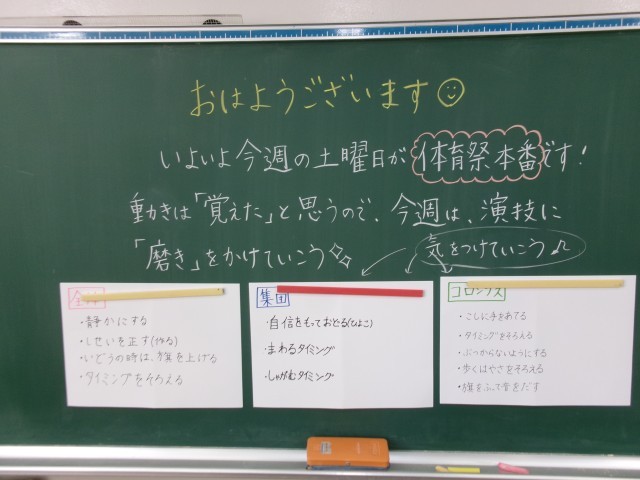 おはようございます☺
いよいよ今週の土曜日が体育祭本番です！
動きは「覚えた」と思うので、今週は、演技に
「磨き」をかけていこう
気をつけていこう♪
・静かにする
・しせいを正す(作る)
・いどうの時は、旗を上げる
・タイミングをそろえる
集団
・自信をもっておどる(ひよこ)
・まわるタイミング
・しゃがむタイミング
・こしに手をあてる
・タイミングをそろえる
・ぶつからないようにする
・歩くはやさをそろえる
・旗をふって音をだす